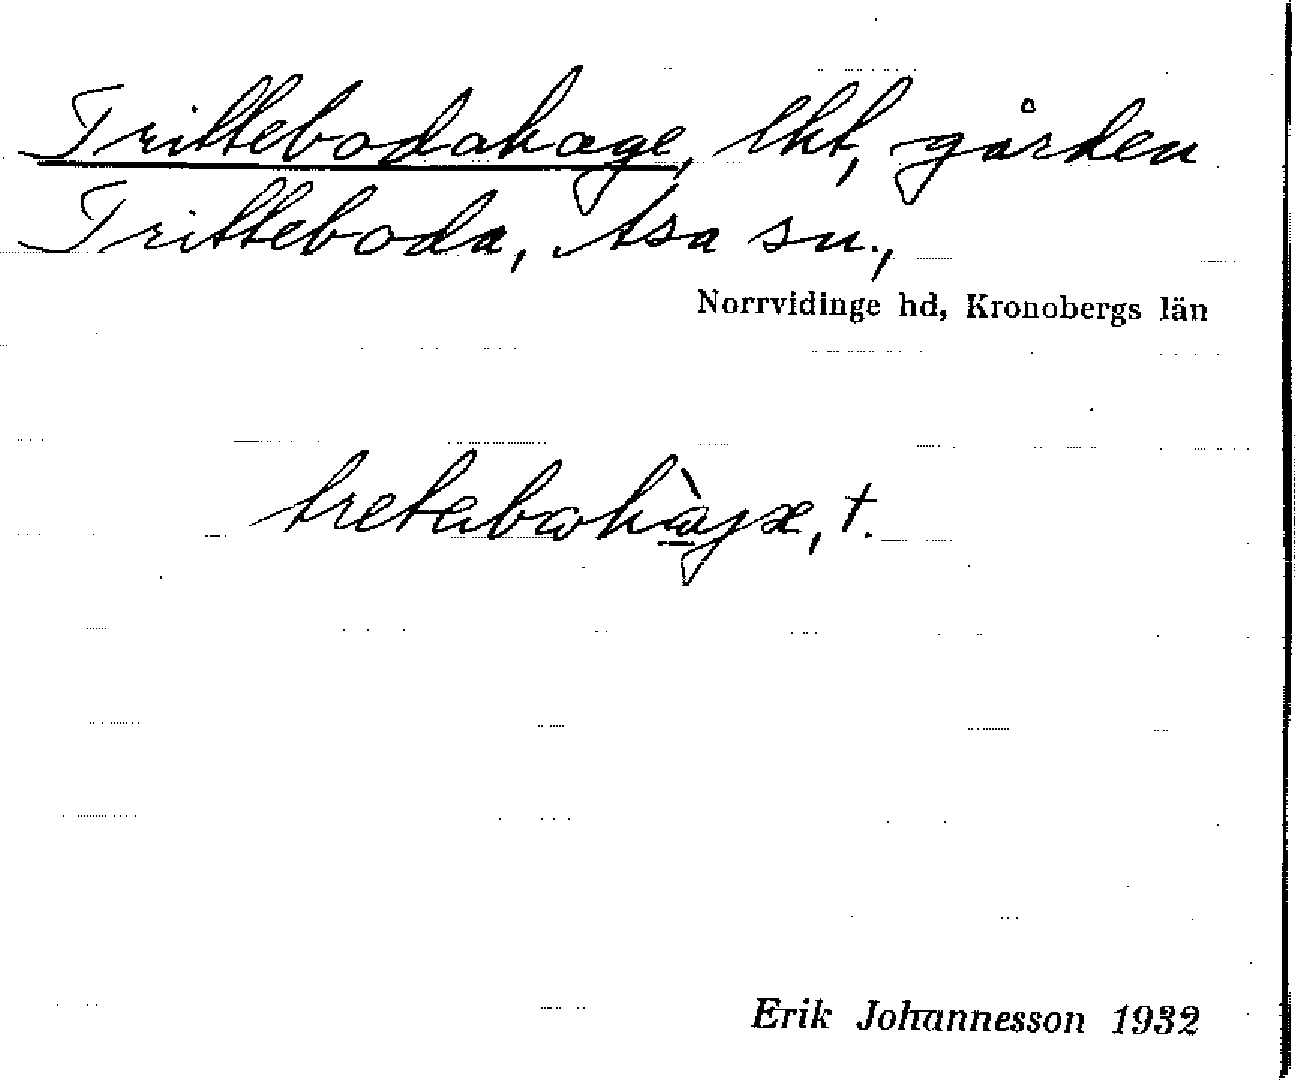 Trittebodahage, lht, gården
Tritteboda, Asa sn.,
Norrvidinge hd, Kronobergs län
t.
Erik Johannesson 1932